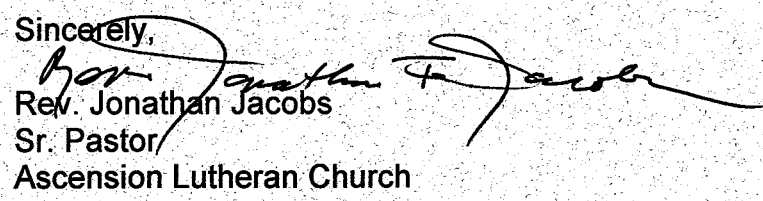 Sincerely,
Rev. Jonathan F. Jacobs
Rev. Jonathan Jacobs
Sr. Pastor
Ascension Lutheran Church